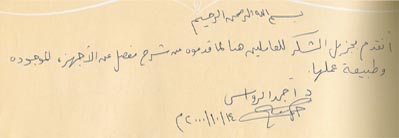 بسم الله الرحمن الرحيم
أتقدم بجزيل الشكر للعاملين هنا لما قدموه من شرح مفصل عن الأجهزة الموجوده
وطبيعة عملها.
د. أحمد الرواس
٢٠٠٠/١٠/١٤م